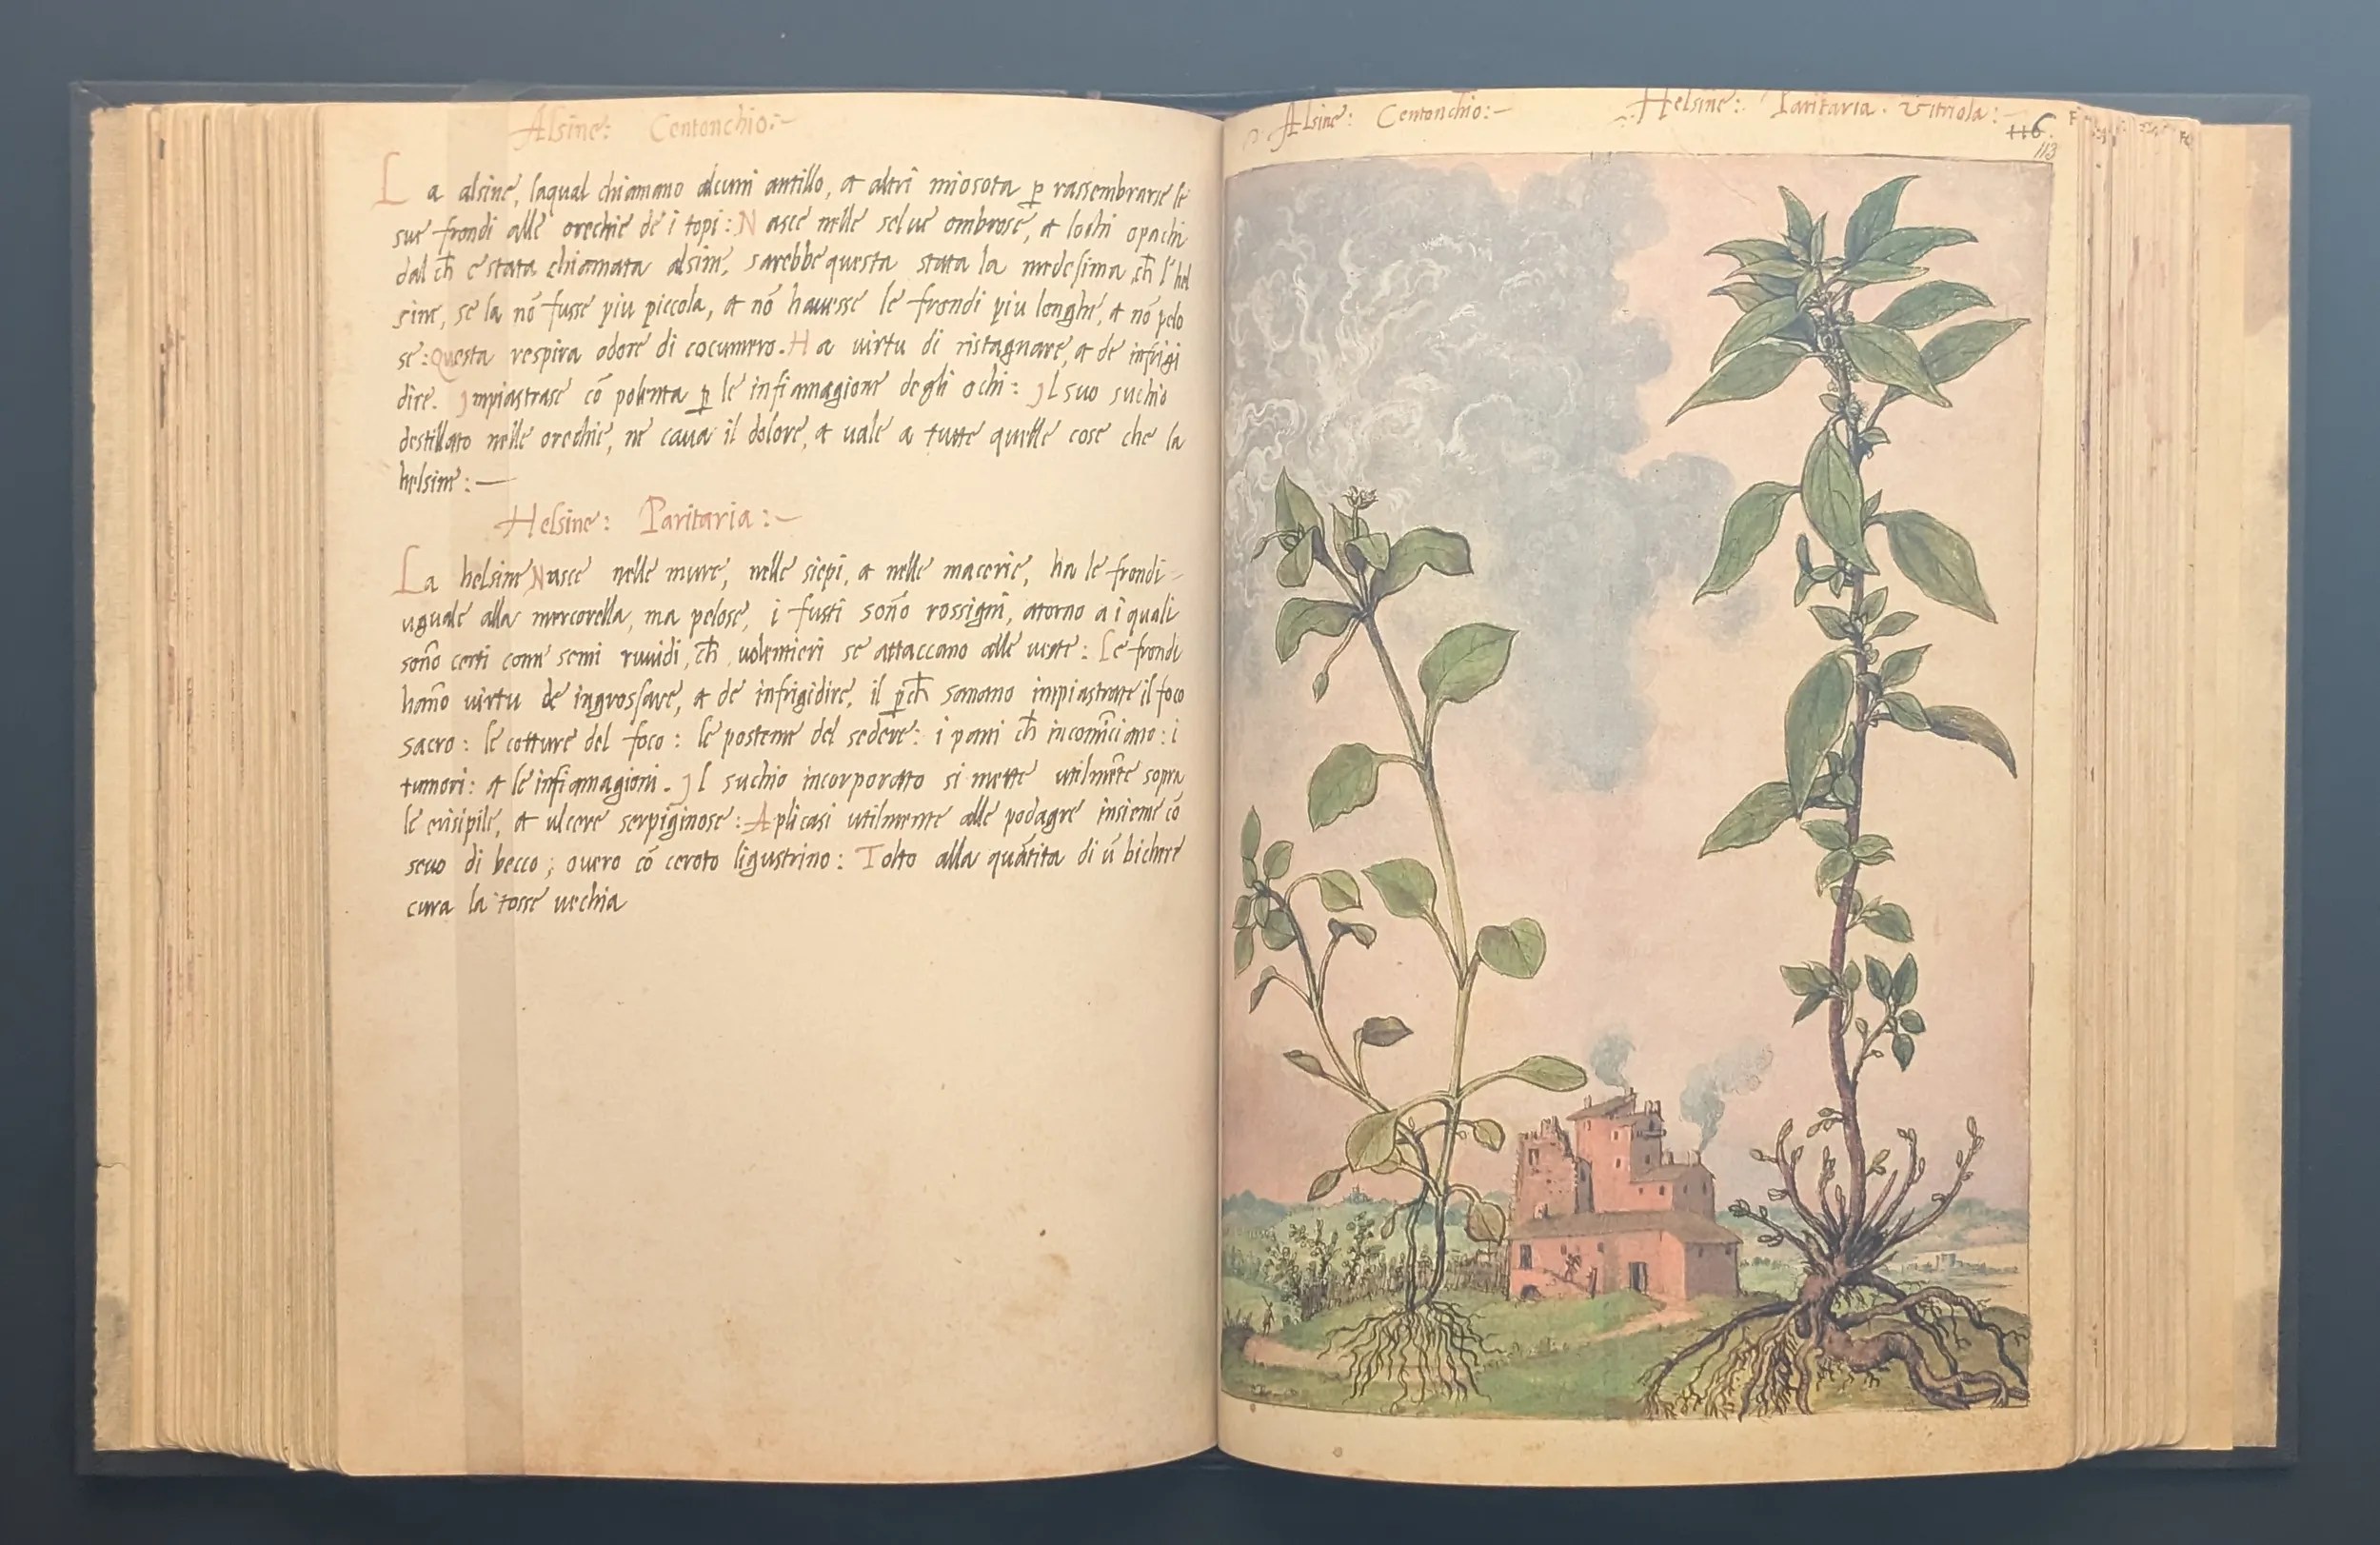 Alsine: Centonchio:~
La alsine, laqual chiamano alcuni antillo, et altri miosota p̱ rassembrarse le
sue frondi alle orechie de i topi: Nasce nelle selue ombrose, et lochi opachi
dal ch̄ e stata chiamata alsine, sarebbe questa stata la medesima, ch̄ l'hel
sine, se la nō fusse piu piccola, et nō hauesse le frondi piu longhe, et nō pelo
se: Questa respira odore di cocumero. Ha uirtu di ristagnare, et de infrigi
dire. Impiastrase cō polenta p̱ le infiamagione degli ochi: Il suo suchio
destillato nelle orechie, ne caua il dolore, et uale a tutte quelle cose che la
helsine:—
Helsine: Paritaria:~
La helsine Nasce nelle mure, nelle siepi, et nelle macerie, ha le frondi
uguale alla mercorella, ma pelose, i fusti sono rossigni, atorno a i quali
sono certi come semi ruuidi, ch̄ uolentieri se attaccano alle ueste: Le frondi
hano uirtu de ingrossare, et de infrigidire, il p̱ch̄ sanano impiastrate il foco
sacro: le cotture del foco: le posteme del sedere: i pani ch̄ incominciano: i
tumori: et le infiamagioni. Il suchio incorporato si mette utilmēte sopra
le erisipile, et ulcere serpiginose: Aplicasi utilmente alle podagre insieme cō
seuo di becco, ouero cō ceroto ligustrino: Tolto alla quātita di ū bichere
cura la tosse uechia
Alsine: Centonchio:~ Helsine: Paritaria. Vitriola:~
116.
113